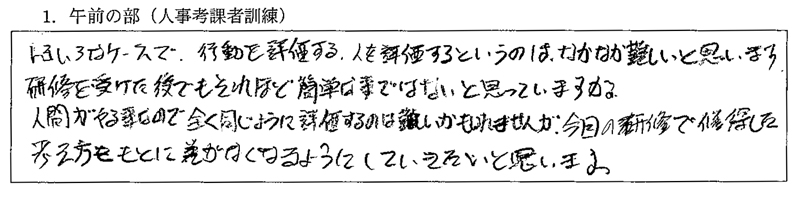 1. 午前の部（人事考課者訓練）
いろいろなケースで、行動を評価する、人を評価するというのは、なかなか難しいと思います。
研修を受けた後でもそれほど簡単な事ではないと思っていますが、
人間がやる事なので全く同じように評価するのは難しいかもしれませんが、今回の研修で修得した
考え方をもとに差がなくなるようにしていきたいと思います。